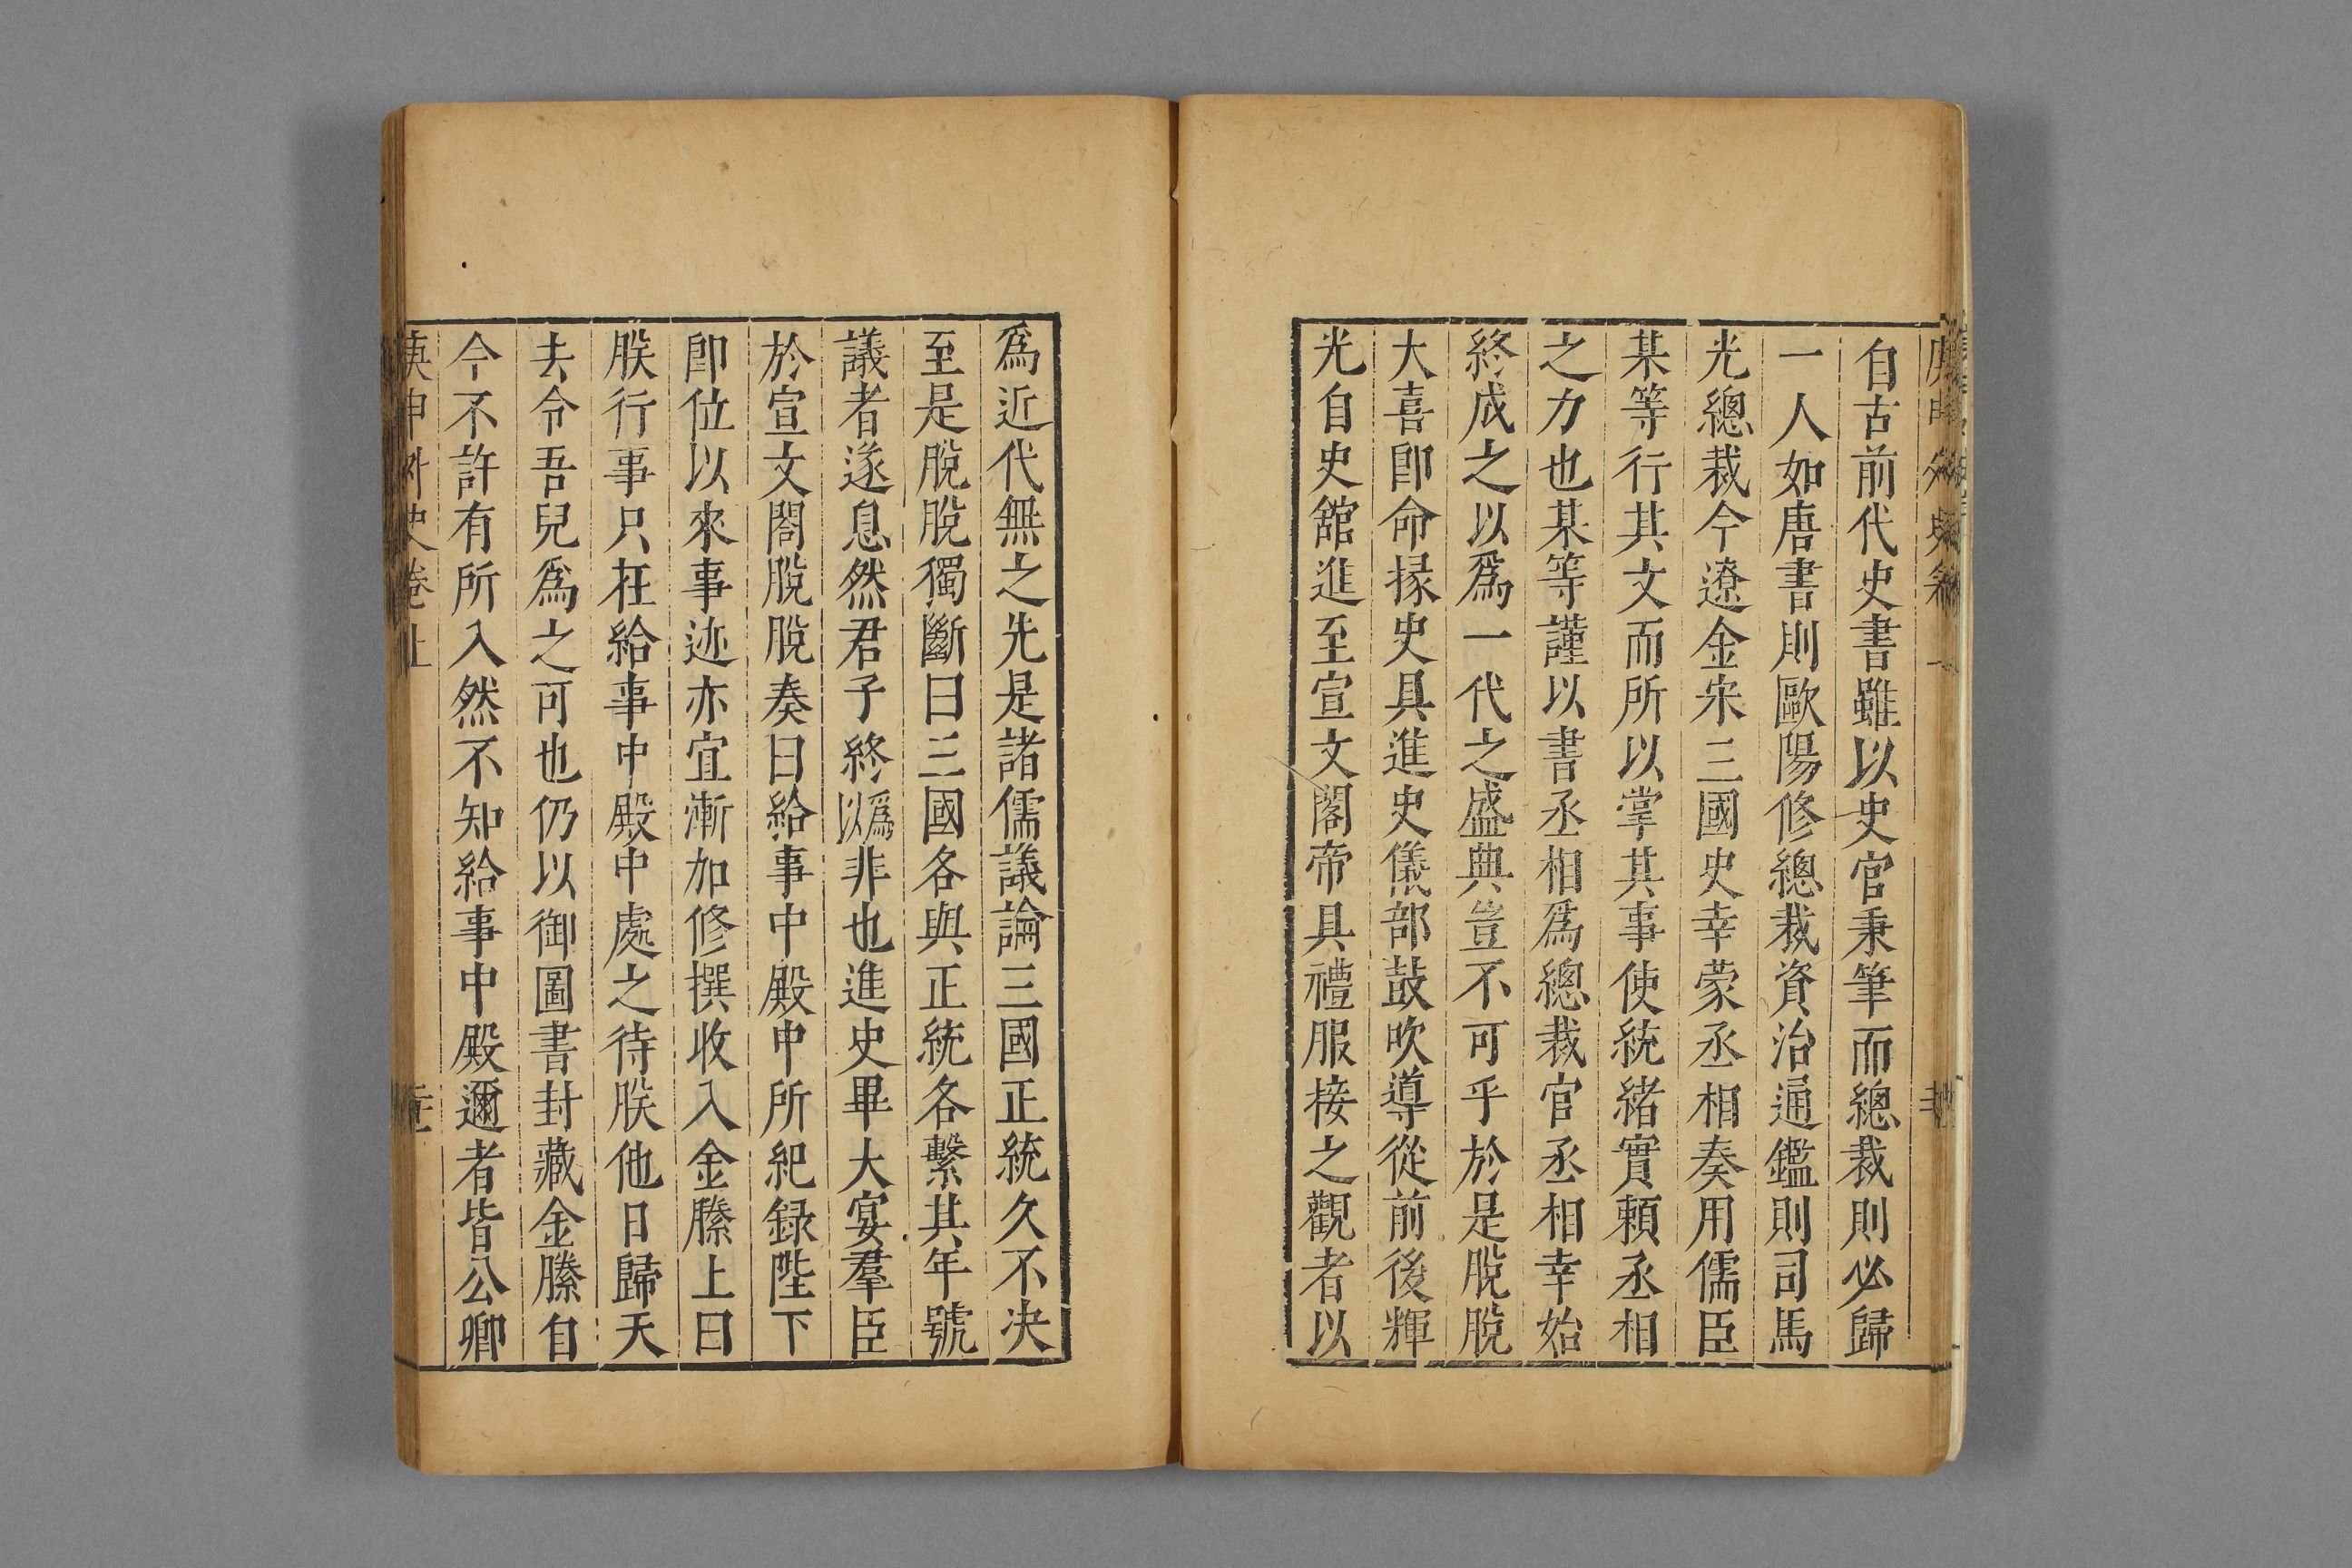 自古前代史書雖以史官秉筆而總裁則必歸
一人如唐書則歐陽修總裁資治通鑑則司馬
光總裁今遼金宋三國史幸蒙丞相奏用儒臣
某等行其文而所以掌其事使統緒實賴丞相
之力也某等謹以書丞相爲總裁官丞相幸始
終成之以爲一代之盛典豈不可乎於是脫脫
大喜卽命掾史具進史儀部鼓吹導從前後輝
光自史館進至宣文閣帝具禮服接之觀者以
爲近代無之先是諸儒議論三國正統久不决
至是脫脫獨斷曰三國各與正統各繫其年號
議者遂息然君子終以爲非也進史畢大宴羣臣
於宣文閣脫脫奏曰給事中殿中所紀録陛下
卽位以來事迹亦宜漸加修撰收入金縢上曰
朕行事只在給事中殿中處之待朕他日歸天
去令吾兒爲之可也仍以御圖書封藏金縢自
今不許有所入然不知給事中殿邇者皆公卿
庚申外史卷上